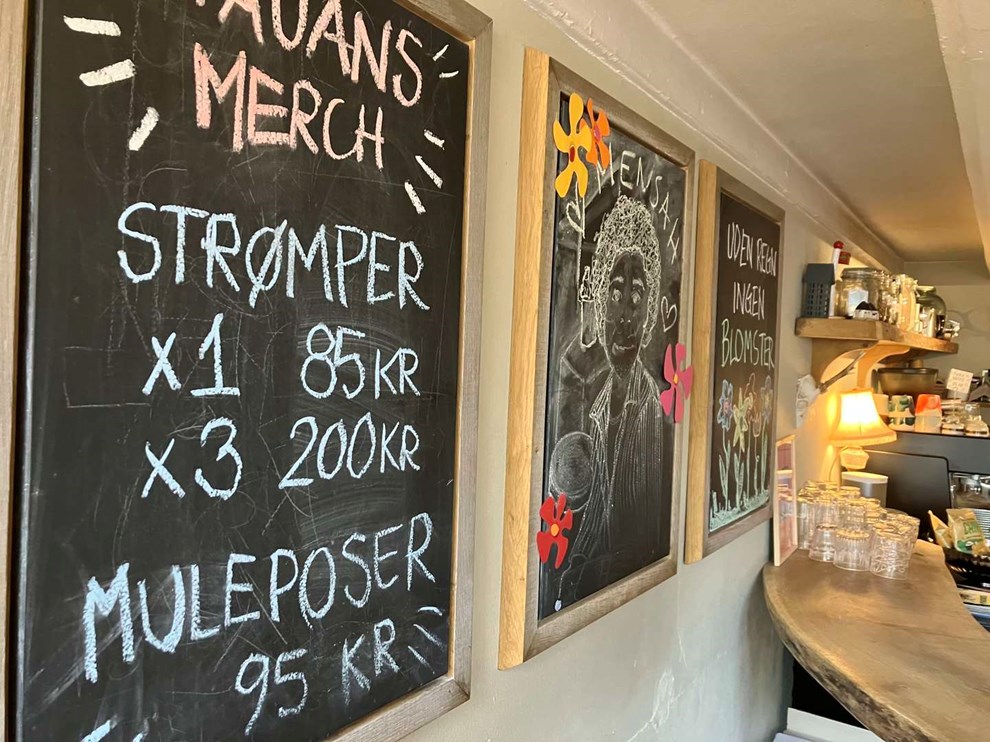 MERCH
STRØMPER
x1 85KR
x3 200KR
MULEPOSER
95 KR
MENSAH
UDEN REGN
INGEN
BLOMSTER